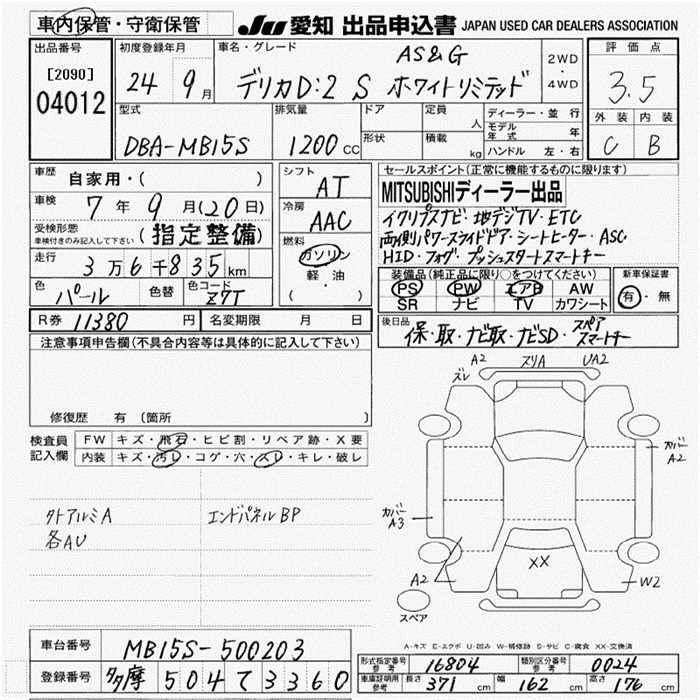 車内保管・守衛保管
JU 愛知 出品申込書 JAPAN USED CAR DEALERS ASSOCIATION
出品番号
[2090]
04012
初度登録年月
24 9月
車名・グレード
AS&G
デリカD:2 S ホワイトリミテッド
2WD
・
4WD
評価点
3.5
外装 内装
C B
型式
DBA-MB15S
排気量
1200cc
ドア
形状
定員
人
積載
kg
ディーラー・並行
モデル年式 年
ハンドル 左・右
車歴
自家用・( )
車検
7年9月(20日)
受検形態
車検付きのみ記入して下さい
(指定整備)
走行
3万6千835km
色
パール
色替
色コード
Z7T
シフト
AT
冷房
AAC
燃料
ガソリン
軽・油
( )
セールスポイント(正常に機能するものに限ります)
MITSUBISHIディーラー出品
イクリプスナビ・地デジTV・ETC
両側パワースライドドア・シートヒーター・ASC
HID・フォグ・プッシュスタートスマートキー
装備品(純正品に限り○をつけてください)
PS PW エアB AW
SR ナビ TV カワシート
新車保証書
有・無
R券 11380円
名変期限 月 日
後日品
保・取・ナビ取・ナビSD・スペアスマートキー
注意事項申告欄(不具合内容等は具体的に記入して下さい)
修復歴 有(箇所
検査員
記入欄
FW キズ・飛石・ヒビ割・リペア跡・X要
内装 キズ・汚レ・コゲ・穴・スレ・キレ・破レ
外アルミA
各AU
エンドパネルBP
ズレ
A2
スリA
UA2
カバーA2
カバーA3
A2
XX
W2
スペア
A-キズ E-エクボ U-凹み W-補修跡 S-サビ C-腐食 XX-交換済
車台番号
MB15S-500203
登録番号
多摩 504 て 3360
形式指定番号
参考
16804
類別区分番号
参考
0024
車庫証明用
参考
長さ 371cm
幅 162cm
高さ 176cm